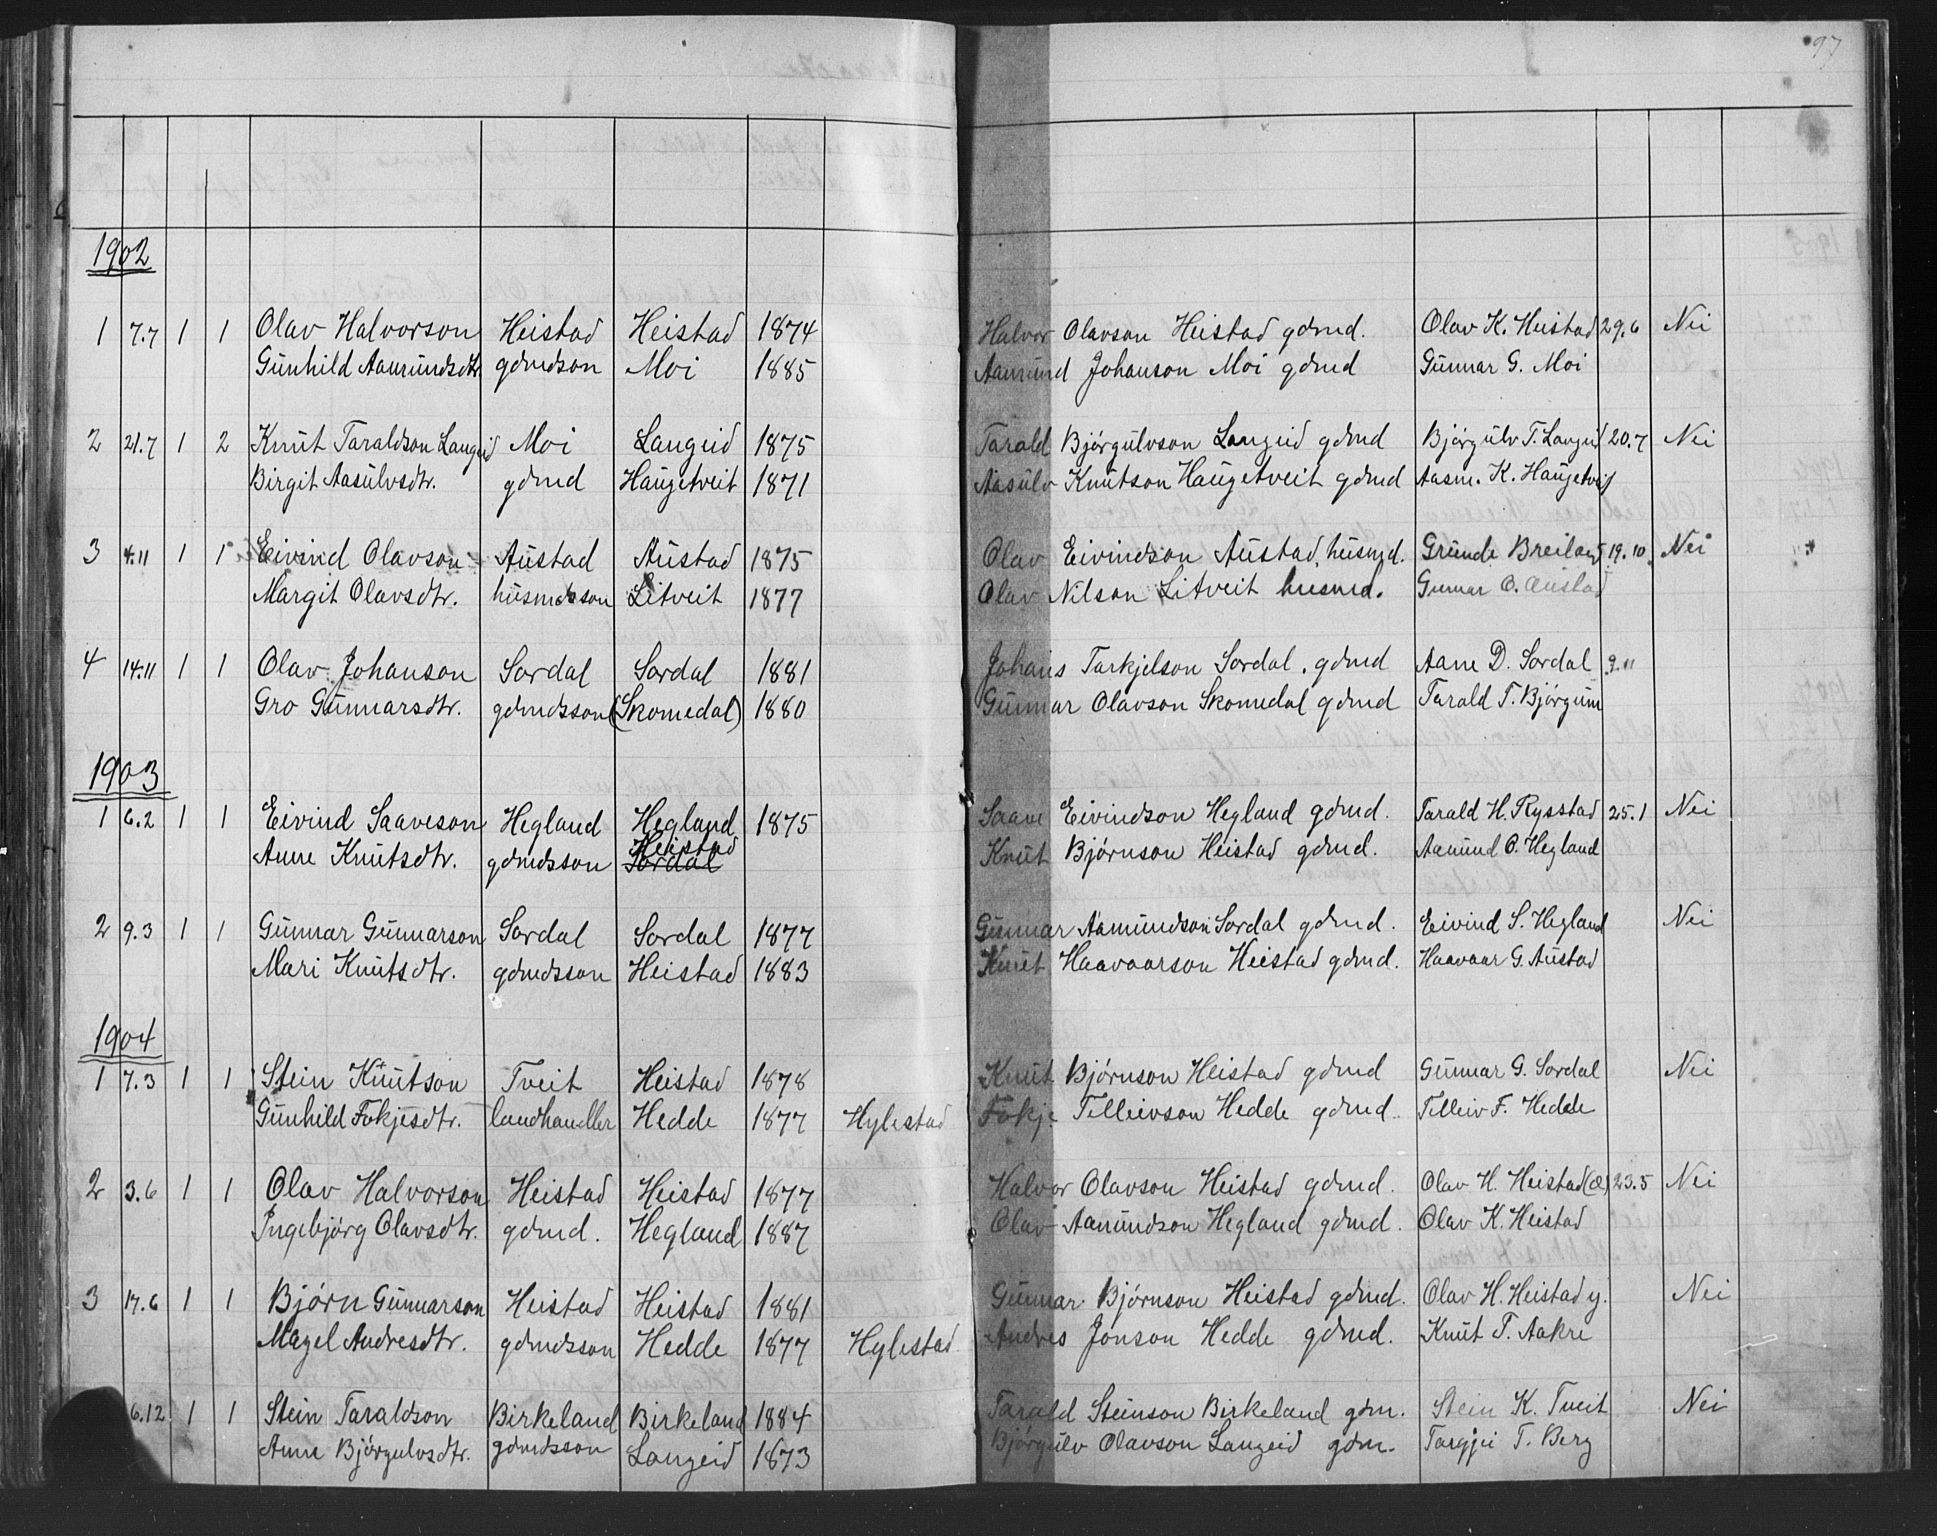 97
1902
1 7.7 1 1 Olav Halvorson Heistad Heistad 1874 Halvor Olavson Heistad gdmd. Olav K. Heistad 29.6 Nei
Gunhild Aanundsdtr gdmdson Moi 1885 Aanund Johanson Moi gdmd Gunnar G. Moi
2 21.7 1 2 Knut Taraldson Langeid Moi Langeid 1875 Tarald Bjørgulvson Langeid gdmd Bjørgulv T. Langeid 20.7 Nei
Birgit Aasulvsdtr. gdmd Haugetveit 1871 Aasulv Knutson Haugetveit gdmd Aasm. K. Haugetveit
3 4.11 1 1 Eivind Olavson Austad Austad 1875 Olav Eivindson Austad, husmd. Grunde Breiland 19.10 Nei
Margit Olavsdtr. husmdson Litveit 1877 Olav Nilson Litveit husmd. Gunnar O. Austad
4 14.11 1 1 Olav Johanson Sordal Sordal 1881 Johans Tarkjelson Sordal, gdmd Aane D. Sordal 9.11
Gro Gunnarsdtr. gdmdsson (Skomedal) 1880 Gunnar Olavson Skomedal gdmd Tarald T. Bjørgum
1903
1 6.2 1 1 Eivind Saaveson Hegland Hegland 1875 Saave Eivindson Hegland gdmd. Tarald H. Rysstad 25.1 Nei
Anne Knutsdtr. gdmdsson Heistad Sordal Knut Bjørnson Heistad gdmd. Aanund O. Hegland
2 9.3 1 1 Gunnar Gunnarson Sordal Sordal 1877 Gunnar Aamundson Sordal gdmd. Eivind S. Hegland Nei
Mari Knutsdtr. gdmdsson Heistad 1883 Knut Haavaarson Heistad gdmd. Haavaar G. Austad
1904
1 7.3 1 1 Stein Knutson Tveit Heistad 1878 Knut Bjørnson Heistad gdmd Gunnar G. Sordal Nei
Gunhild Fokjesdtr. landhandler Hedde 1877 Hylestad Fokje Telleivson Hedde gdmd. Telleiv F. Hedde
2 3.6 1 1 Olav Halvorson Heistad Heistad 1877 Halvor Olavson Heistad gdmd. Olav H. Heistad (æ) 23.5 Nei
Ingebjørg Olavsdtr. gdmd. Hegland 1887 Olav Aanundson Hegland gdmd. Olav K. Heistad
3 17.6 1 1 Bjørn Gunnarson Heistad Heistad 1881 Gunnar Bjørnson Heistad gdmd. Olav H. Heistad y. Nei
Margel Andresdtr. gdmdsson Hedde 1877 Hylestad Andres Jonson Hedde gdmd. Knut T. Aakre
6.12 1 1 Stein Taraldson Birkeland Birkeland 1884 Tarald Steinson Birkeland gdm. Stein K. Tveit Nei
Anne Bjørgulvsdtr. gdmdsson Langeid 1873 Bjørgulv Olavson Langeid gdm. Targjei T. Berg